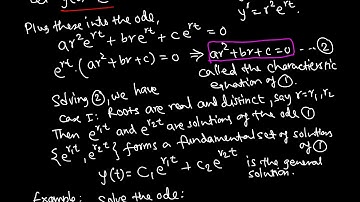 Plug these into the ode,
y'' = r²e^{rt}
ar²e^{rt} + bre^{rt} + ce^{rt} = 0
e^{rt}·(ar²+br+c) = 0 ⇒ ar²+br+c=0 ---②
called the characteristic
equation of ①
Solving ②, we have
case I: Roots are real and distinct, say r=r₁,r₂
Then e^{r₁t} and e^{r₂t} are solutions of the ode ①
{e^{r₁t}, e^{r₂t}} forms a fundamental set of solutions
of ①
y(t) = C₁e^{r₁t} + c₂e^{r₂t} is the general
solution.
Example: Solve the ode: